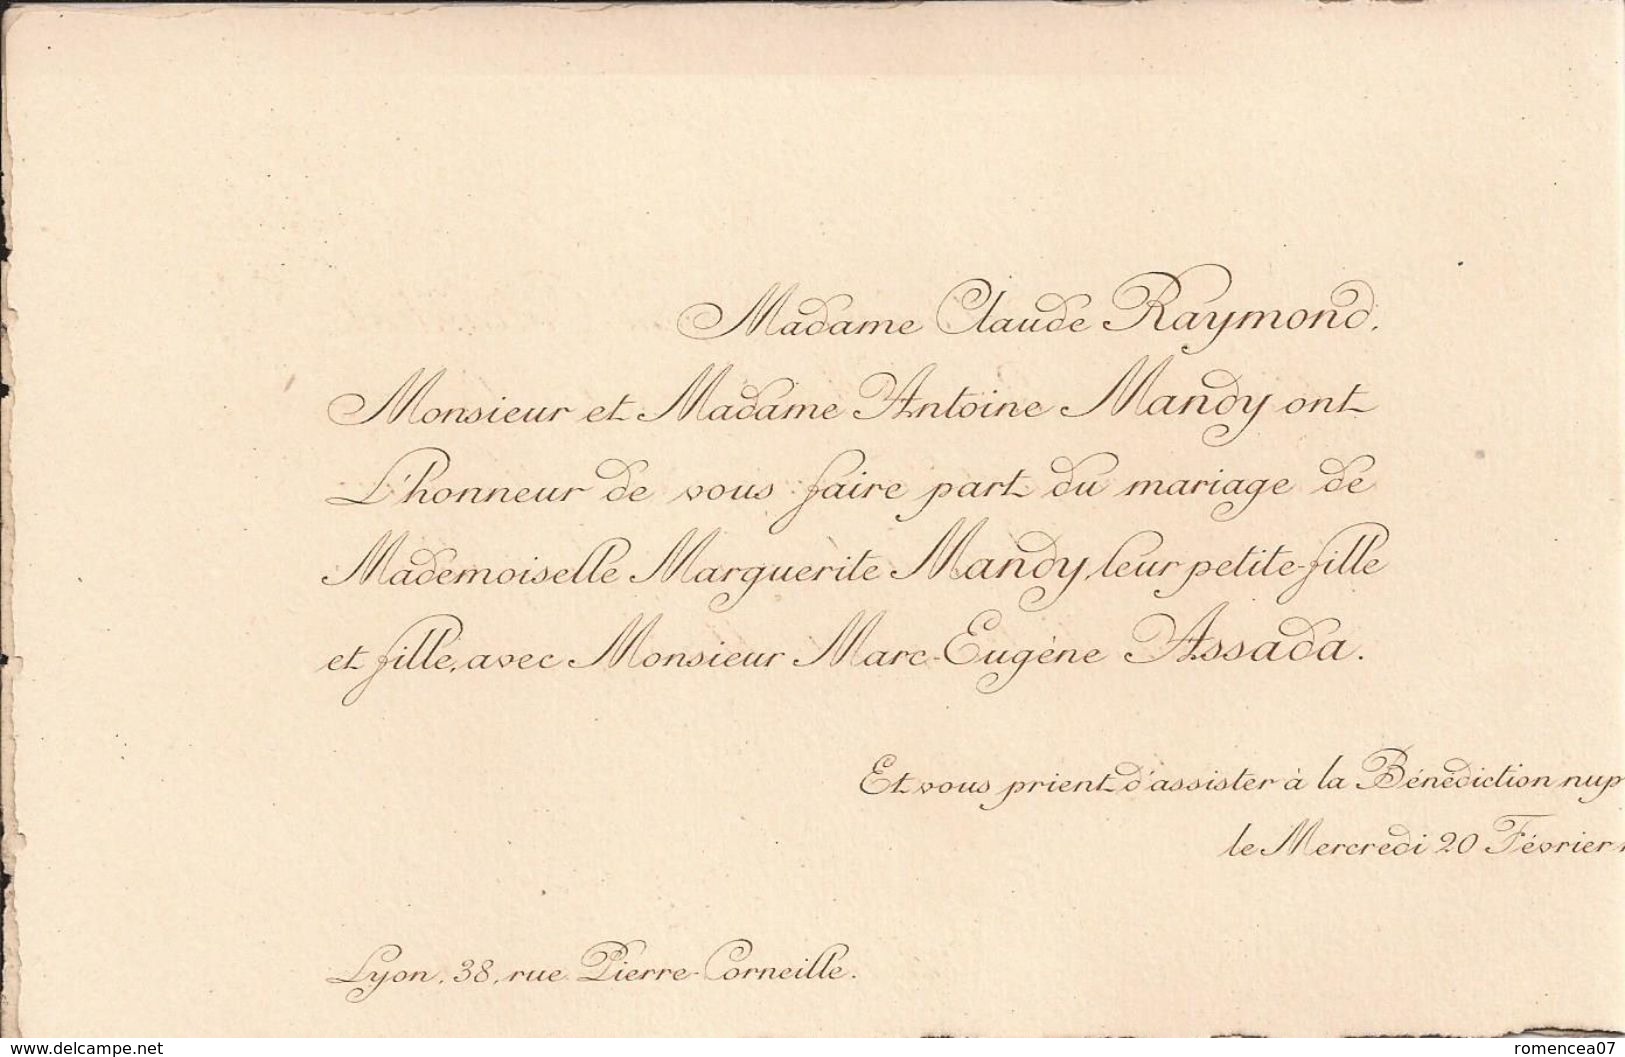 Madame Claude Raymond.
Monsieur et Madame Antoine Mandy ont
L'honneur de vous faire part du mariage de
Mademoiselle Marguerite Mandy, leur petite-fille
et fille, avec Monsieur Marc-Eugène Assada.
Et vous prient d'assister à la Bénédiction nup
le Mercredi 20 Février
Lyon, 38, rue Pierre-Corneille.
www.delcampe.net
romencea07